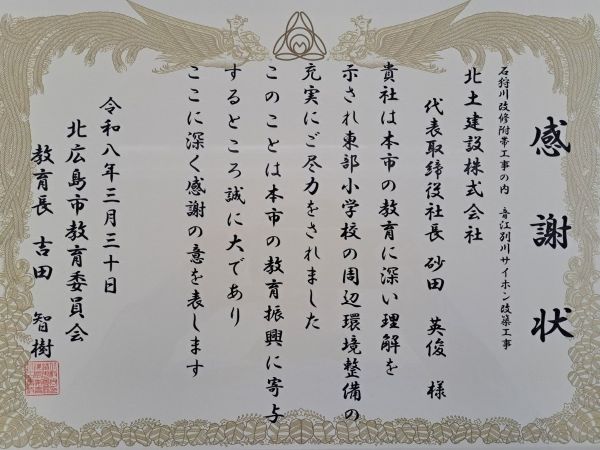 感謝状
石狩川改修附帯工事の内 音江別川サイホン改築工事
北土建設株式会社
代表取締役社長 砂田 英俊 様
貴社は本市の教育に深い理解を
示され東部小学校の周辺環境整備の
充実にご尽力をされました
このことは本市の教育振興に寄与
するところ誠に大であり
ここに深く感謝の意を表します
令和八年三月三十日
北広島市教育委員会
教育長 吉田 智樹